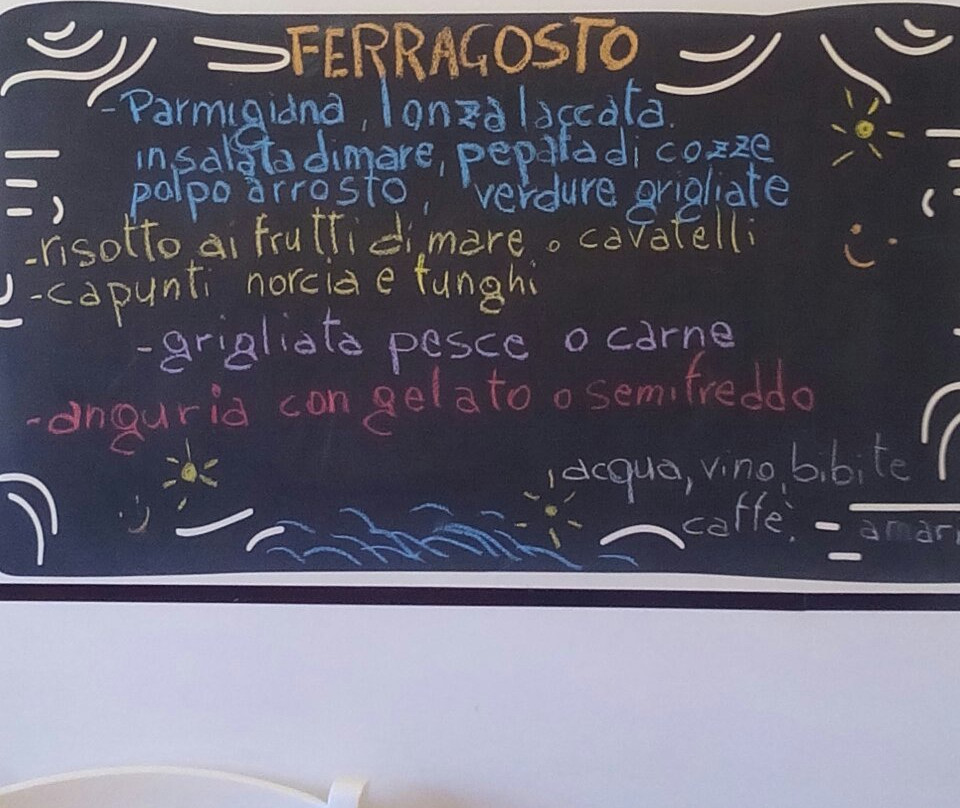 FERRAGOSTO
-Parmigiana, lonza laccata.
insalata di mare, pepata di cozze
polpo arrosto, verdure grigliate
-risotto ai frutti di mare o cavatelli
-capunti norcia e funghi
-grigliata pesce o carne
-anguria con gelato o semifreddo
acqua, vino, bibite
caffè, amari